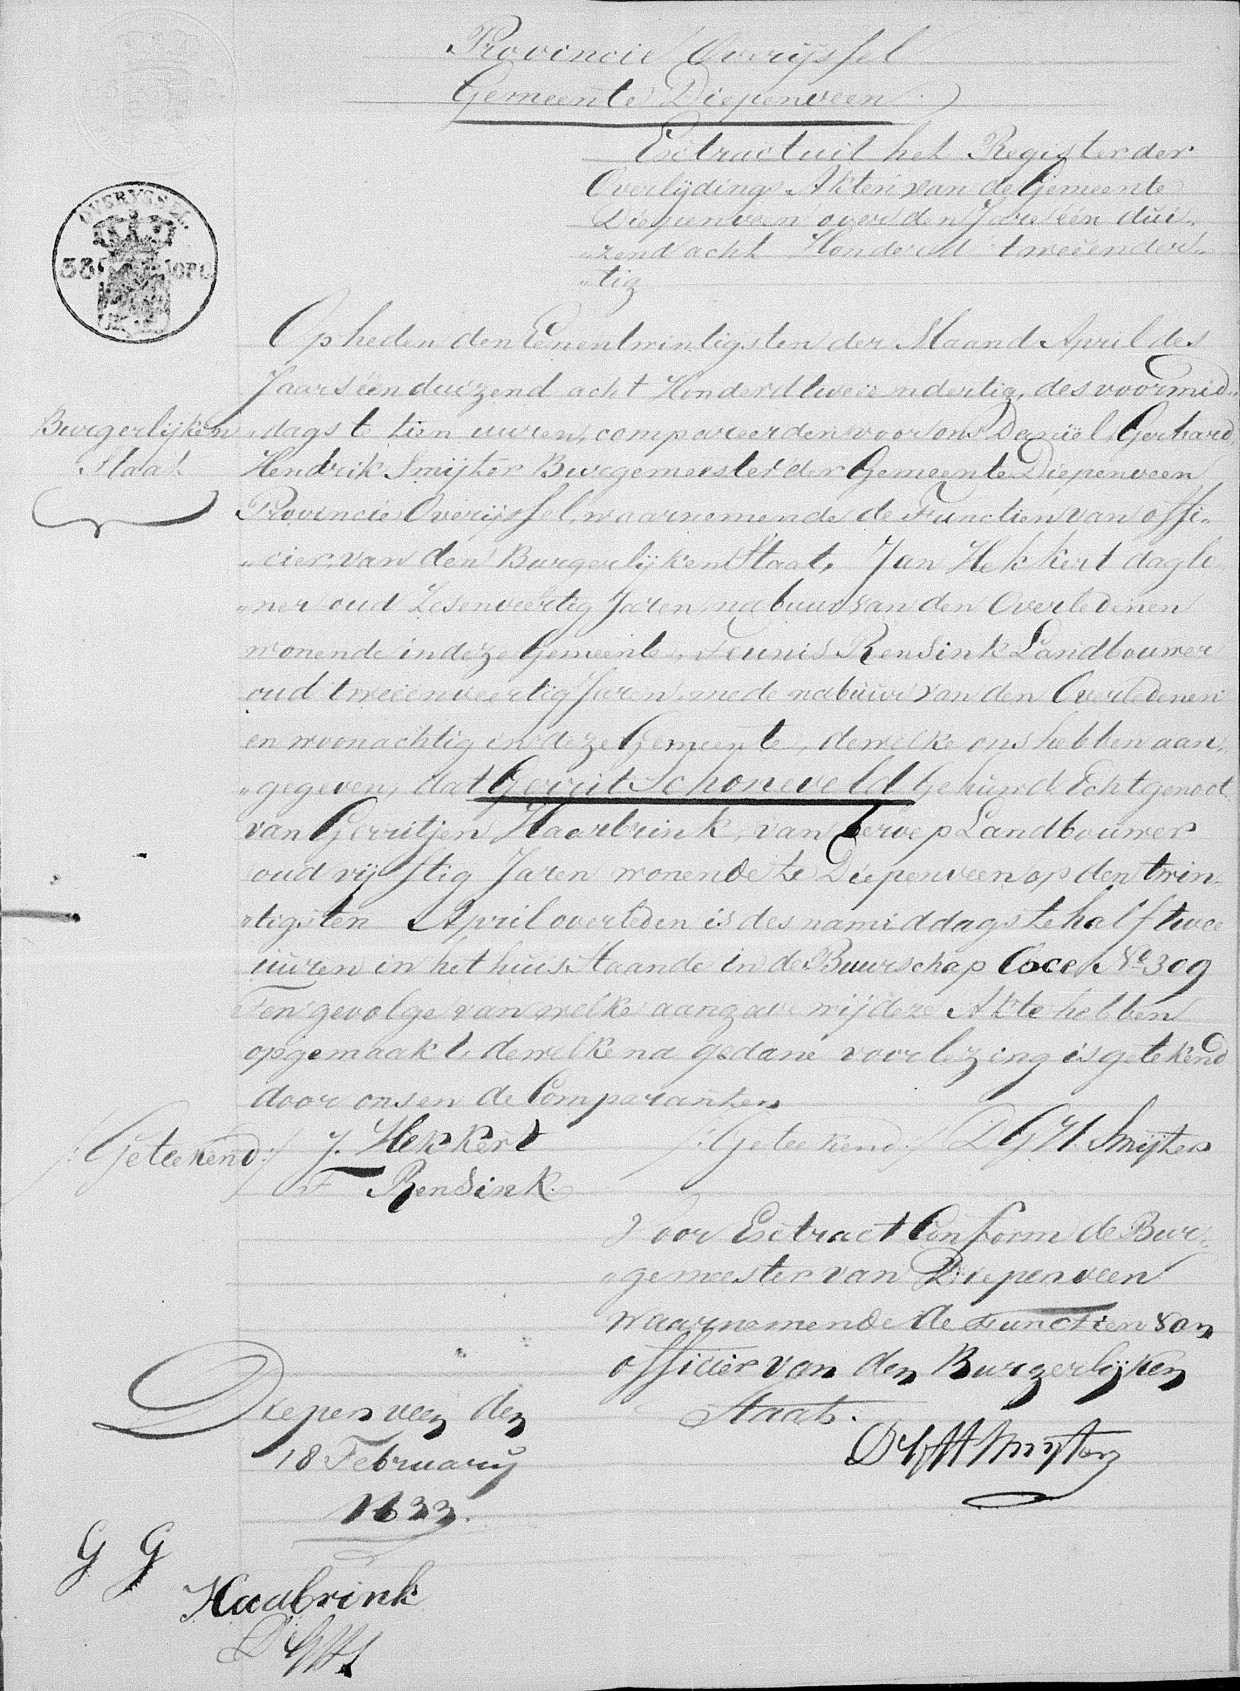 Provincie Overijssel
Gemeente Diepenveen
Extract uit het Register der
Overlijdings Akten van de Gemeente
Diepenveen over den Jare één dui„
„zend acht Honderd tweeënder„
„tig
OVERYSSEL
Op heden den Eenentwintigsten der Maand April des
Jaars één duizend acht Honderd tweeendertig, des voormid„
Burgerlijken
Staat
„dags te tien uuren, compareerden voor ons Daniël Gerhard
Hendrik Smijter Burgemeester der Gemeente Diepenveen
Provincie Overijssel, waarnemende de Functien van offi„
„cier, van den Burgerlijken Staat, Jan Hekkert daglo
„ner oud Zesenveertig Jaren nabuur van den Overledenen
wonende in deze Gemeente, Teunis Rensink Landbouwer
oud tweeenveertig Jaren mede nabuur van den Overledenen
en woonachtig in deze Gemeente, dewelke ons hebben aan„
„gegeven, dat Gerrit Schoneveld Gehuwd Echtgenoot
van Gerritjen Haarbrink, van beroep Landbouwer
oud vijftig Jaren wonende te Diepenveen op den twin„
„tigsten April overleden is des namiddags te half twee
uuren in het huis staande in de Buurschap Oxce No 309
Ten gevolge van welke aangave wij deze Akte hebben
opgemaakt dewelke na gedane voorlezing is getekend
door ons en de Comparanten
/:Geteekend:/ J. Hekkert /:Geteekend:/ D G H. Smijter
T Rensink.
Voor Extract Conform de Bur„
„gemeester van Diepenveen
waarnemende de Functien van
officier van den Burgerlijken
Staat.
D G H Smijter
Diepenveen den
18 February
1833.
G G
Haabrink
D G H S